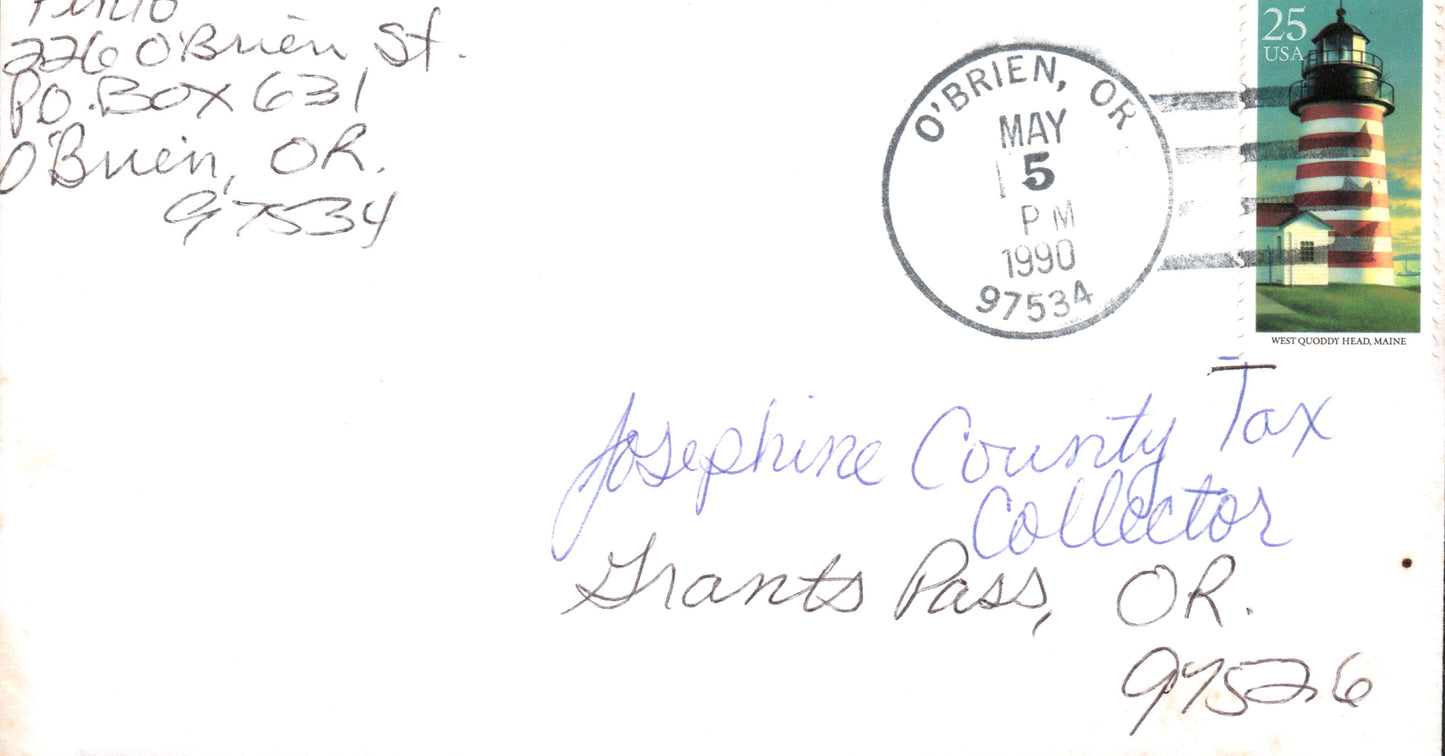 226 O'Brien St.
P.O. Box 631
O'Brien, OR.
97534
O'BRIEN, OR
MAY
5
PM
1990
97534
25
USA
WEST QUODDY HEAD, MAINE
Josephine County Tax
Collector
Grants Pass, OR.
97526